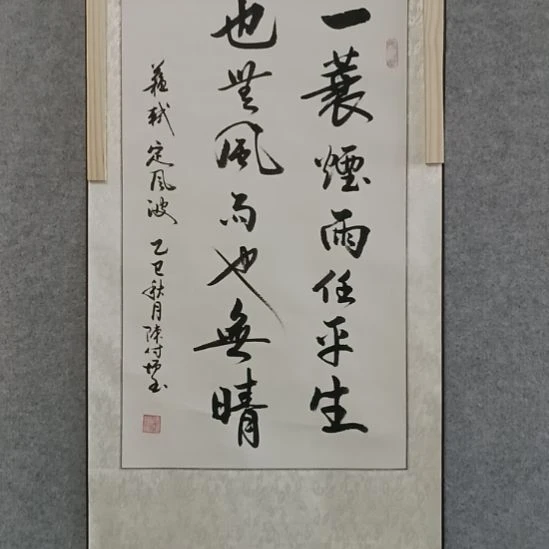 一蓑煙雨任平生
也無風雨也無晴
蘇軾 定風波 乙巳秋月陳付书